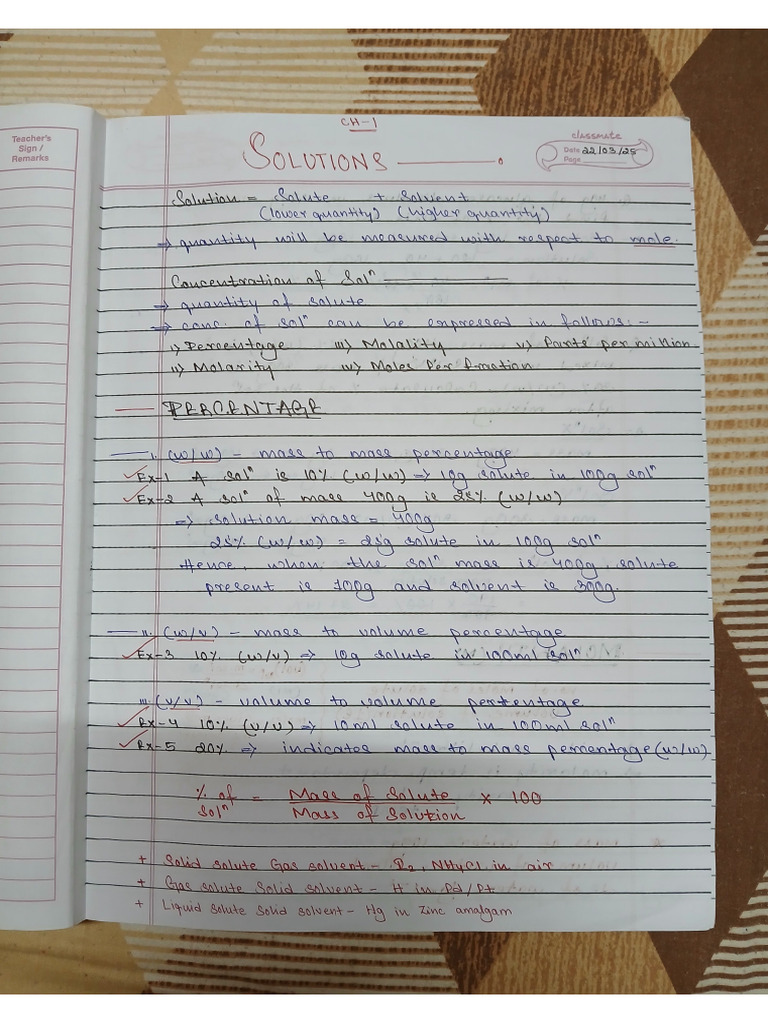 Teacher's
Sign /
Remarks
CH-1
classmate
Date 22/03/25
Page
SOLUTIONS
Solution = Solute + Solvent
(lower quantity) (higher quantity)
→ quantity will be measured with respect to mole.
Concentration of Solⁿ
→ quantity of solute
→ conc. of solⁿ can be expressed in follows:-
i) Percentage iii) Molality v) Parts per million
ii) Molarity iv) Moles Per fraction
PERCENTAGE
i. (w/w) - mass to mass percentage
Ex-1 A solⁿ is 10% (w/w) ⇒ 10g solute in 100g solⁿ
Ex-2 A solⁿ of mass 400g is 25% (w/w)
⇒ solution mass = 400g
25% (w/w) = 25g solute in 100g solⁿ
Hence, when the solⁿ mass is 400g, solute
present is 100g and solvent is 300g.
ii. (w/v) - mass to volume percentage
Ex-3 10% (w/v) ⇒ 10g solute in 100ml solⁿ
iii. (v/v) - volume to volume percentage
Ex-4 10% (v/v) ⇒ 10ml solute in 100ml solⁿ
Ex-5 20% ⇒ indicates mass to mass percentage (w/w)
% of solⁿ = Mass of Solute / Mass of Solution × 100
+ Solid solute Gas solvent - I₂, NH4Cl in air
+ Gas solute Solid solvent - H in Pd/Pt
+ Liquid solute solid solvent - Hg in Zinc amalgam